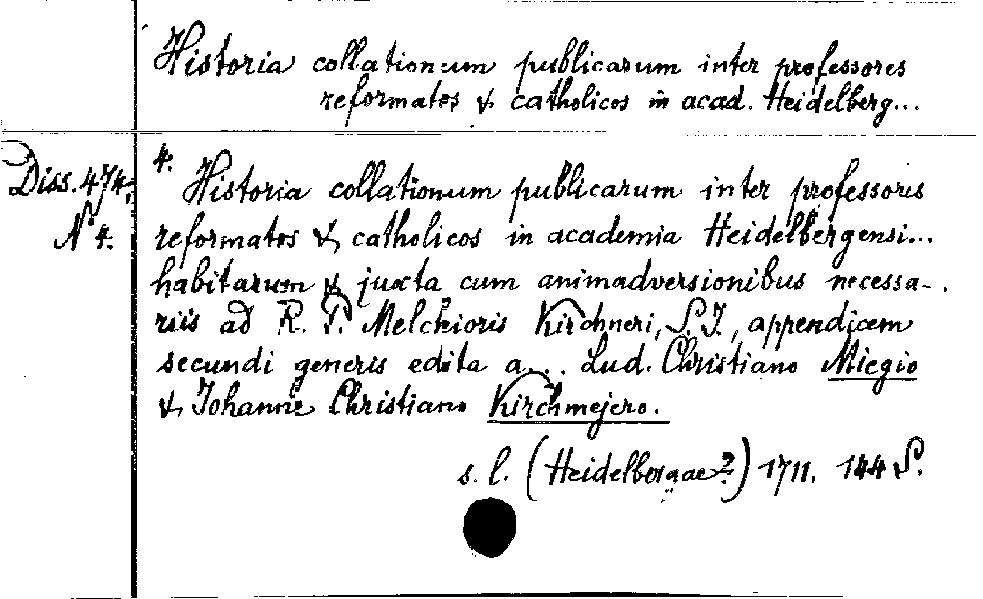 Historia collationum publicarum inter professores
reformatos & catholicos in acad. Heidelberg...
Diss. 474,
N 4.
4.
Historia collationum publicarum inter professoris
reformatos & catholicos in academia Heidelbergensi...
habitarum & juxta cum animadversionibus necessa-
riis ad R. P. Melchioris Kirchneri, S. J., appendicem
secundi generis edita a... Lud. Christiano Miegio
& Johanne Christiano Kirchmejero.
s. l. (Heidelbergae?) 1711. 144 S.